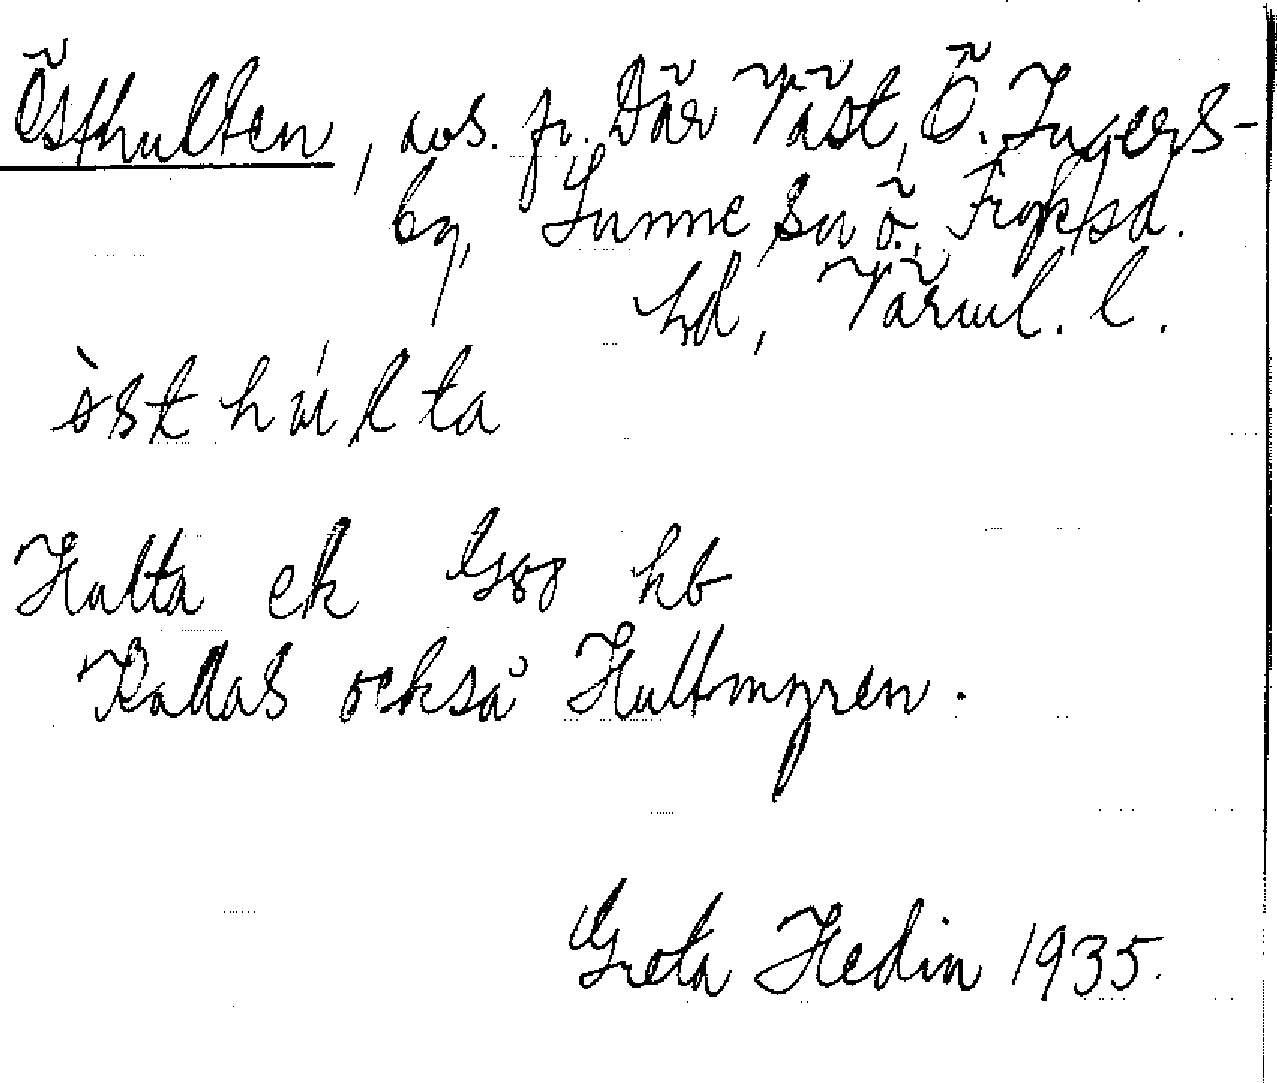 Östhulten, avs. fr. Där Väst, Ö. Ingers-
by, Sunne sn, Ö. Fryksd.
hd, Värml. l.
òst húlta
Hulta ek G88 kb
Kallas också Hultmyren.
Greta Hedin 1935.